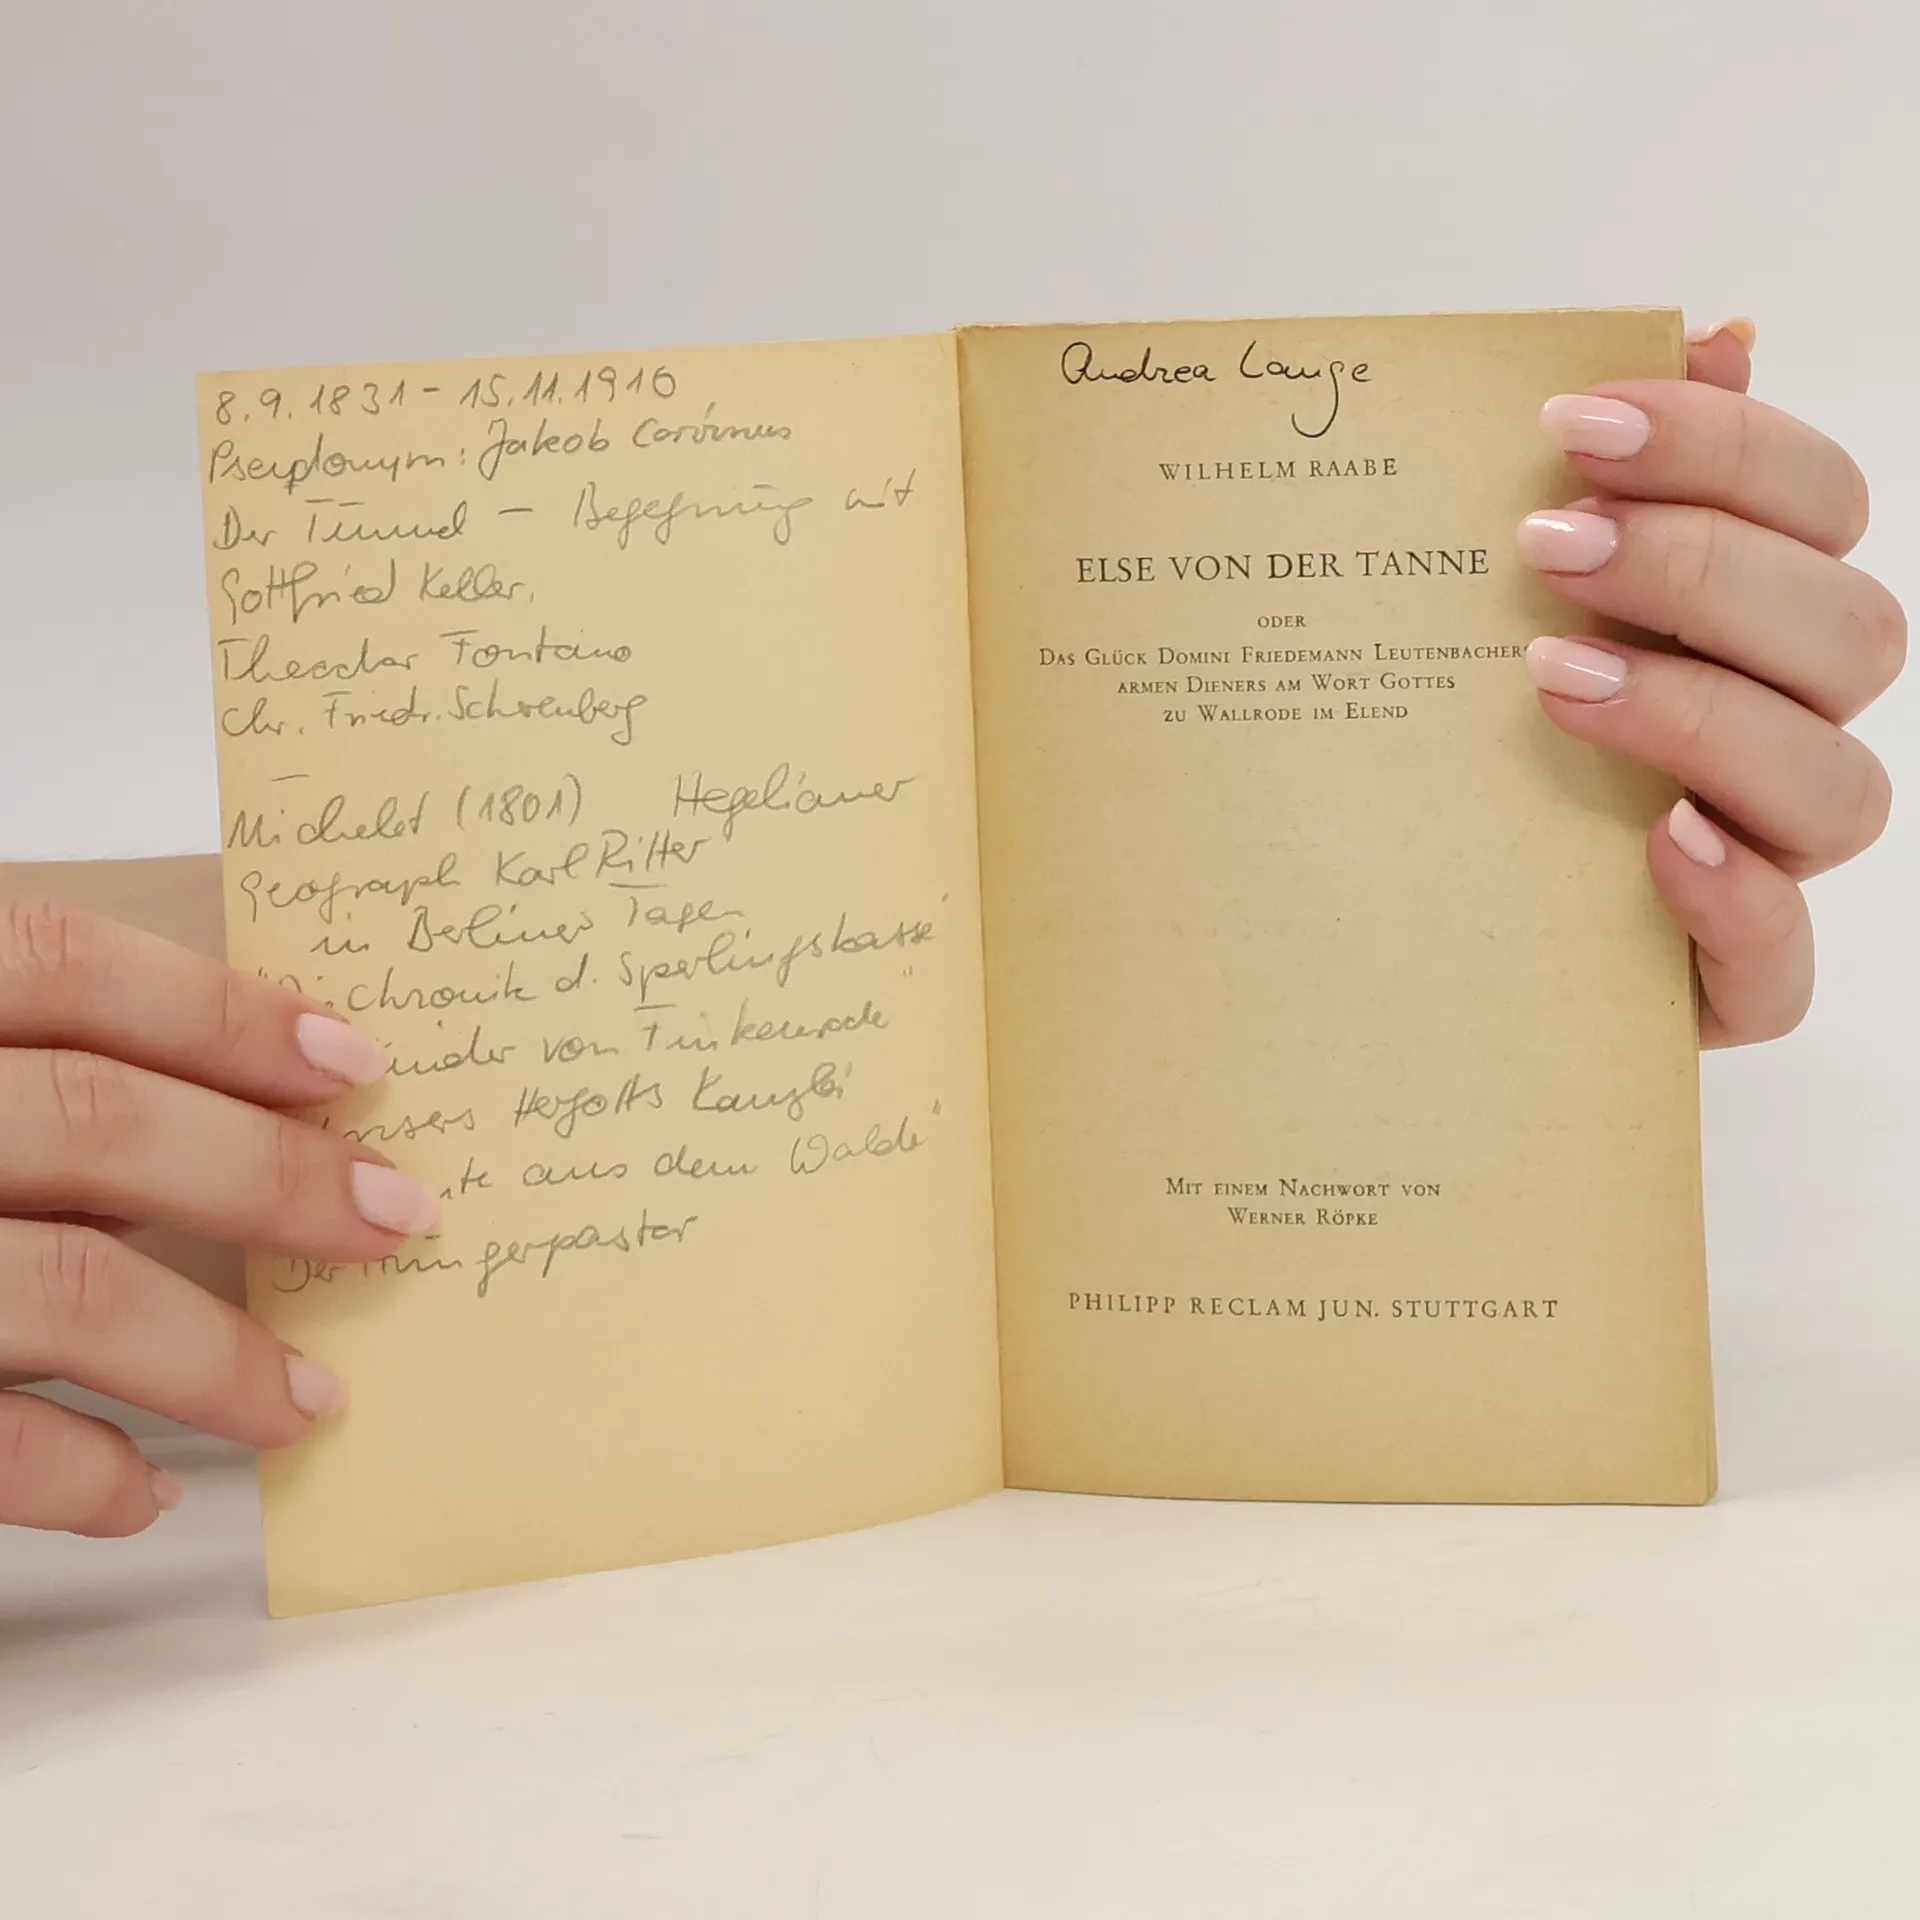 8.9.1831 - 15.11.1910
Pseudonym: Jakob Corvinus
Der Tunnel - Begegnung mit
Gottfried Keller,
Theodor Fontane
Chr. Friedr. Scherenberg
—
Michelet (1801) Hegelianer
Geograph Karl Ritter
in Berliner Tagen
Chronik d. Sperlingsgasse"
von Finkenrode"
Herrgotts Kanzlei
aus dem Walde"
Der Hungerpastor
Andrea Lange
WILHELM RAABE
ELSE VON DER TANNE
ODER
DAS GLÜCK DOMINI FRIEDEMANN LEUTENBACHERS
ARMEN DIENERS AM WORT GOTTES
ZU WALLRODE IM ELEND
MIT EINEM NACHWORT VON
WERNER RÖPKE
PHILIPP RECLAM JUN. STUTTGART